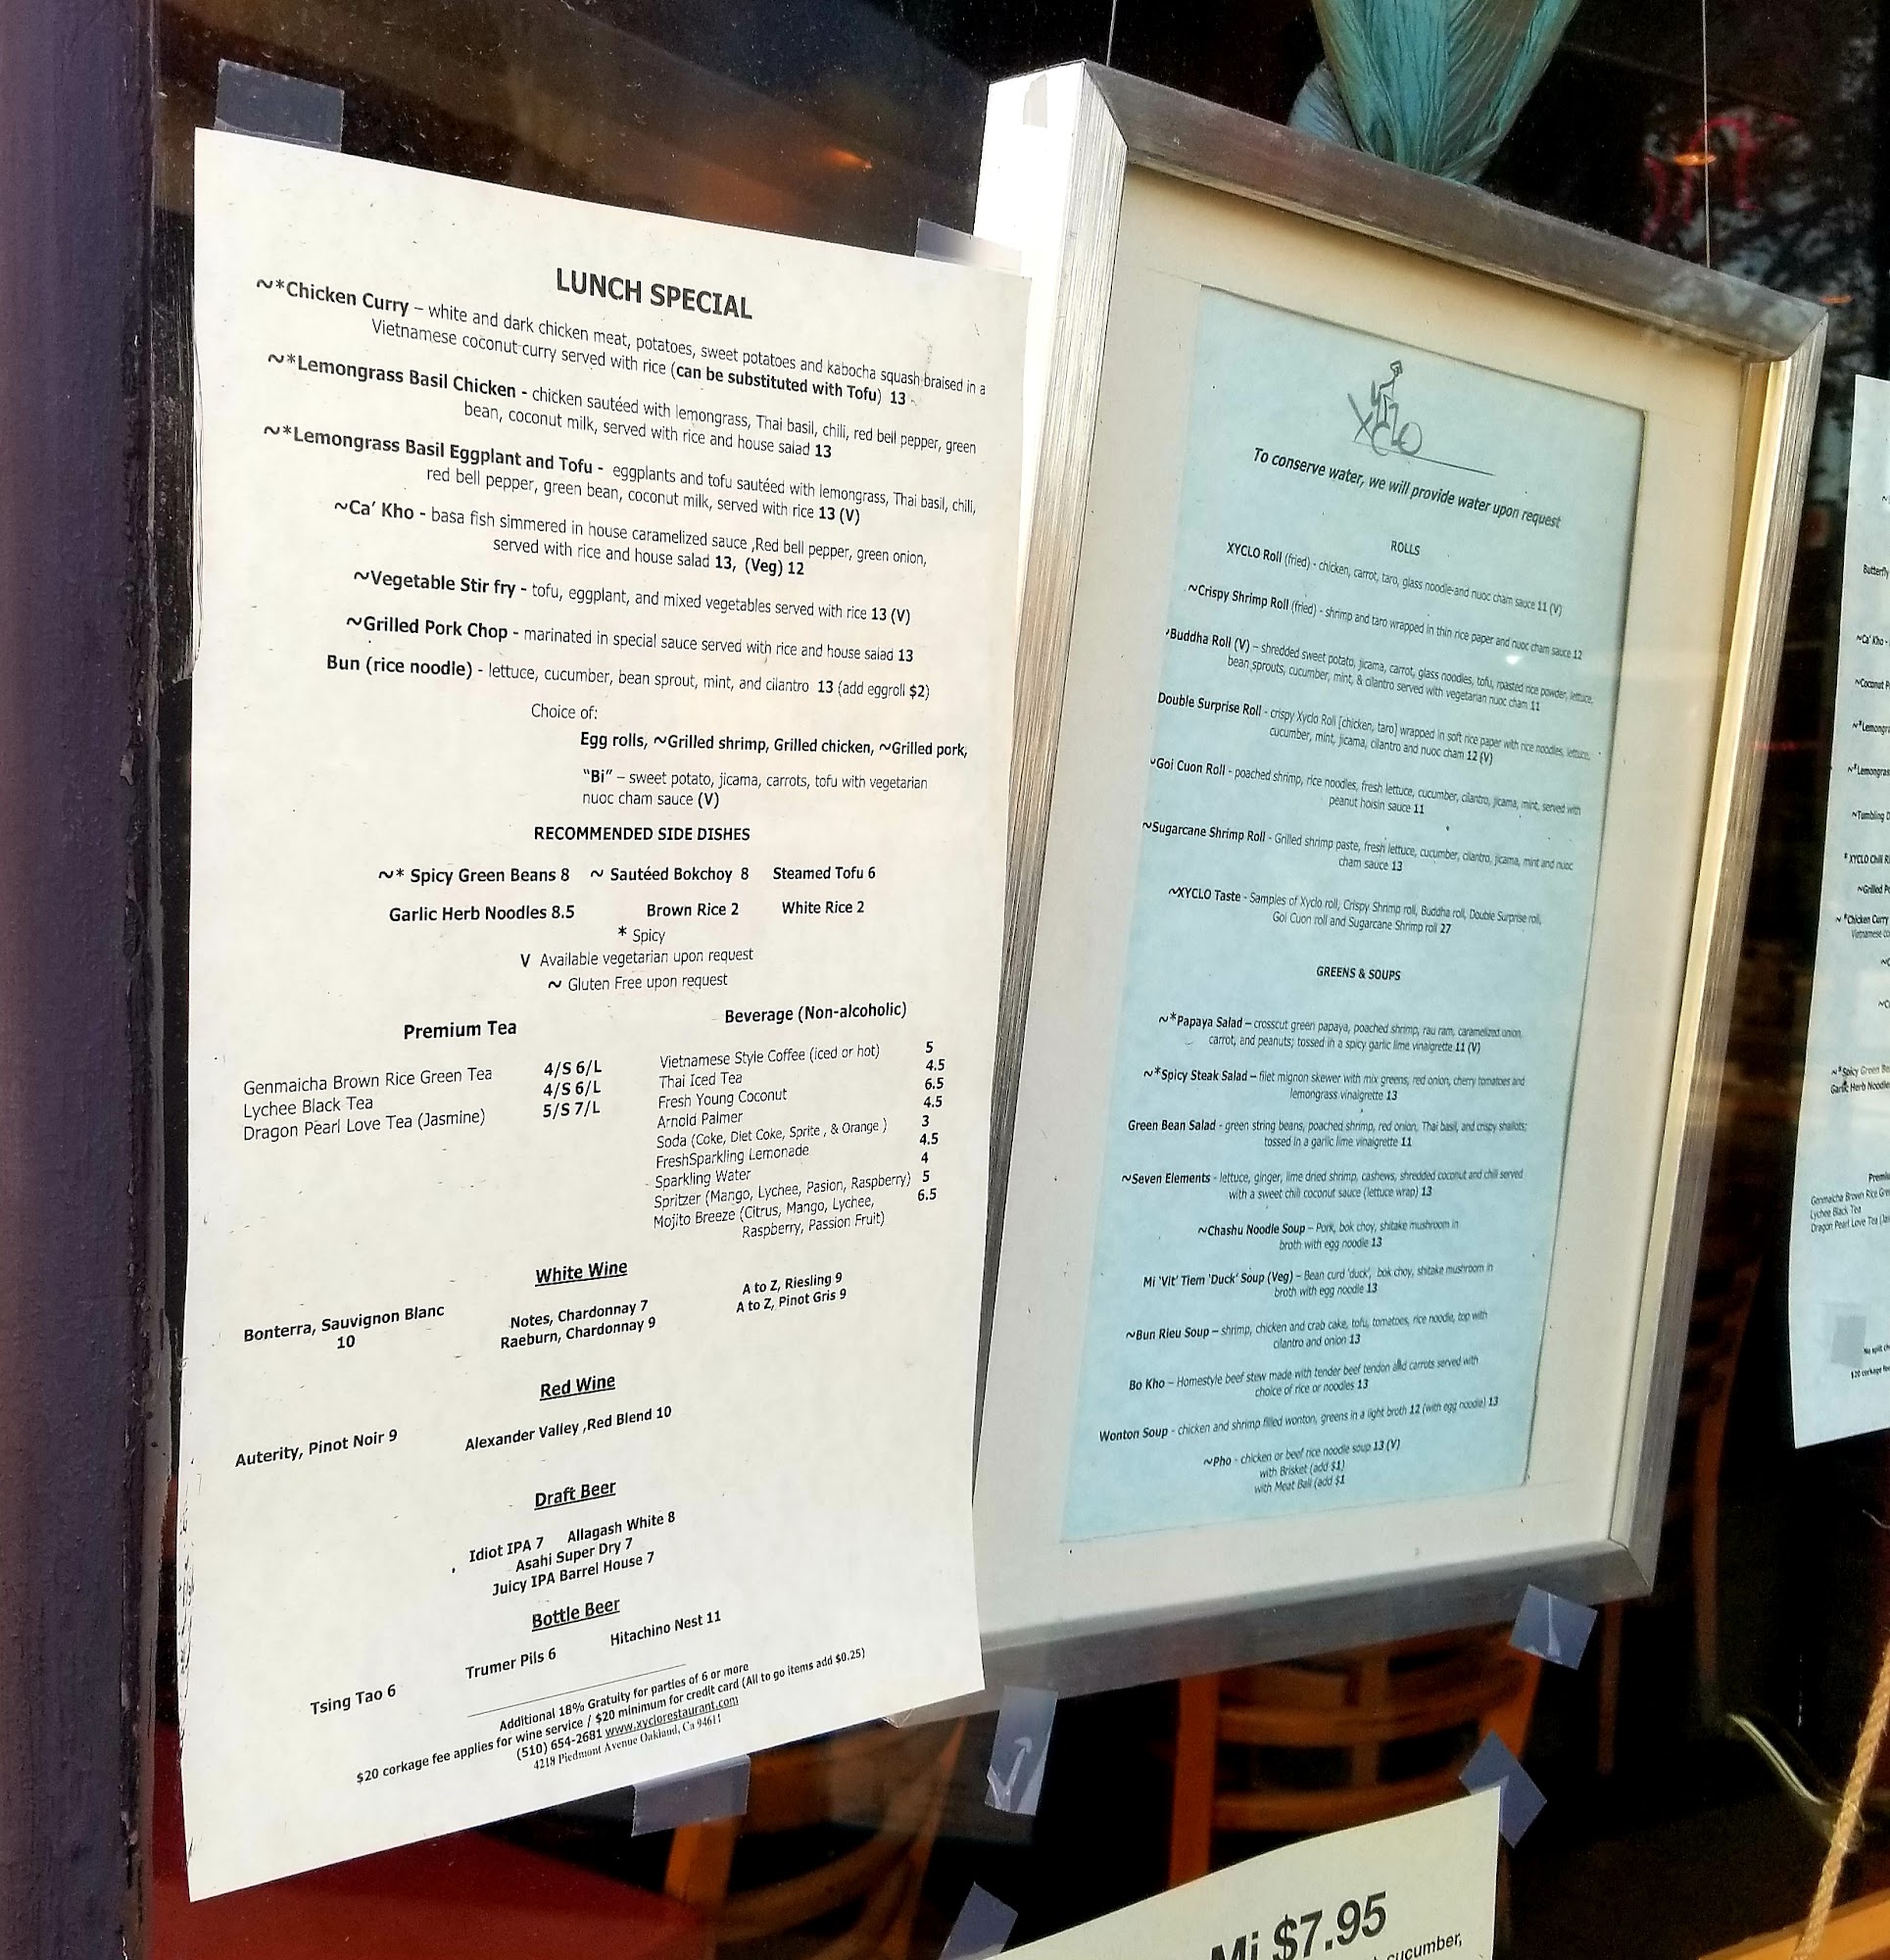 LUNCH SPECIAL
~*Chicken Curry – white and dark chicken meat, potatoes, sweet potatoes and kabocha squash braised in a
Vietnamese coconut curry served with rice (can be substituted with Tofu) 13
~*Lemongrass Basil Chicken - chicken sautéed with lemongrass, Thai basil, chili, red bell pepper, green
bean, coconut milk, served with rice and house salad 13
~*Lemongrass Basil Eggplant and Tofu - eggplants and tofu sautéed with lemongrass, Thai basil, chili,
red bell pepper, green bean, coconut milk, served with rice 13 (V)
~Ca' Kho - basa fish simmered in house caramelized sauce ,Red bell pepper, green onion,
served with rice and house salad 13, (Veg) 12
~Vegetable Stir fry - tofu, eggplant, and mixed vegetables served with rice 13 (V)
~Grilled Pork Chop - marinated in special sauce served with rice and house salad 13
Bun (rice noodle) - lettuce, cucumber, bean sprout, mint, and cilantro 13 (add eggroll $2)
Choice of:
Egg rolls, ~Grilled shrimp, Grilled chicken, ~Grilled pork,
"Bi" – sweet potato, jicama, carrots, tofu with vegetarian
nuoc cham sauce (V)
RECOMMENDED SIDE DISHES
~* Spicy Green Beans 8 ~ Sautéed Bokchoy 8 Steamed Tofu 6
Garlic Herb Noodles 8.5 Brown Rice 2 White Rice 2
* Spicy
V Available vegetarian upon request
~ Gluten Free upon request
Premium Tea
Genmaicha Brown Rice Green Tea 4/S 6/L
Lychee Black Tea 4/S 6/L
Dragon Pearl Love Tea (Jasmine) 5/S 7/L
Beverage (Non-alcoholic)
Vietnamese Style Coffee (iced or hot) 5
Thai Iced Tea 4.5
Fresh Young Coconut 6.5
Arnold Palmer 4.5
Soda (Coke, Diet Coke, Sprite , & Orange ) 3
FreshSparkling Lemonade 4.5
Sparkling Water 4
Spritzer (Mango, Lychee, Pasion, Raspberry) 5
Mojito Breeze (Citrus, Mango, Lychee, 6.5
Raspberry, Passion Fruit)
White Wine
Bonterra, Sauvignon Blanc
10
Notes, Chardonnay 7
Raeburn, Chardonnay 9
A to Z, Riesling 9
A to Z, Pinot Gris 9
Red Wine
Auterity, Pinot Noir 9 Alexander Valley ,Red Blend 10
Draft Beer
Idiot IPA 7 Allagash White 8
Asahi Super Dry 7
Juicy IPA Barrel House 7
Bottle Beer
Tsing Tao 6 Trumer Pils 6 Hitachino Nest 11
Additional 18% Gratuity for parties of 6 or more
$20 corkage fee applies for wine service / $20 minimum for credit card (All to go items add $0.25)
(510) 654-2681 www.xyclorestaurant.com
4218 Piedmont Avenue Oakland, Ca 94611
To conserve water, we will provide water upon request
ROLLS
XYCLO Roll (fried) - chicken, carrot, taro, glass noodle and nuoc cham sauce 11 (V)
~Crispy Shrimp Roll (fried) - shrimp and taro wrapped in thin rice paper and nuoc cham sauce 12
~Buddha Roll (V) – shredded sweet potato, jicama, carrot, glass noodles, tofu, roasted rice powder, lettuce,
bean sprouts, cucumber, mint, & cilantro served with vegetarian nuoc cham 11
Double Surprise Roll - crispy Xyclo Roll [chicken, taro] wrapped in soft rice paper with rice noodles, lettuce,
cucumber, mint, jicama, cilantro and nuoc cham 12 (V)
~Goi Cuon Roll - poached shrimp, rice noodles, fresh lettuce, cucumber, cilantro, jicama, mint, served with
peanut hoisin sauce 11
~Sugarcane Shrimp Roll - Grilled shrimp paste, fresh lettuce, cucumber, cilantro, jicama, mint and nuoc
cham sauce 13
~XYCLO Taste - Samples of Xyclo roll, Crispy Shrimp roll, Buddha roll, Double Surprise roll,
Goi Cuon roll and Sugarcane Shrimp roll 27
GREENS & SOUPS
~*Papaya Salad – crosscut green papaya, poached shrimp, rau ram, caramelized onion,
carrot, and peanuts; tossed in a spicy garlic lime vinaigrette 11 (V)
~*Spicy Steak Salad – filet mignon skewer with mix greens, red onion, cherry tomatoes and
lemongrass vinaigrette 13
Green Bean Salad - green string beans, poached shrimp, red onion, Thai basil, and crispy shallots;
tossed in a garlic lime vinaigrette 11
~Seven Elements - lettuce, ginger, lime dried shrimp, cashews, shredded coconut and chili served
with a sweet chili coconut sauce (lettuce wrap) 13
~Chashu Noodle Soup – Pork, bok choy, shitake mushroom in
broth with egg noodle 13
Mi 'Vit' Tiem 'Duck' Soup (Veg) – Bean curd 'duck', bok choy, shitake mushroom in
broth with egg noodle 13
~Bun Rieu Soup – shrimp, chicken and crab cake, tofu, tomatoes, rice noodle, top with
cilantro and onion 13
Bo Kho – Homestyle beef stew made with tender beef tendon and carrots served with
choice of rice or noodles 13
Wonton Soup - chicken and shrimp filled wonton, greens in a light broth 12 (with egg noodle) 13
~Pho - chicken or beef rice noodle soup 13 (V)
with Brisket (add $1)
with Meat Ball (add $1
Butterfly
~Ca' Kho -
~Coconut
~Tumbling
* XYCLO Chili
~Grilled
~*Chicken Curry
~*Spicy Green
Garlic Herb
Genmaicha Brown Rice
Lychee Black Tea
Dragon Pearl Love Tea
No split
$20 corkage
Mi $7.95
cucumber,